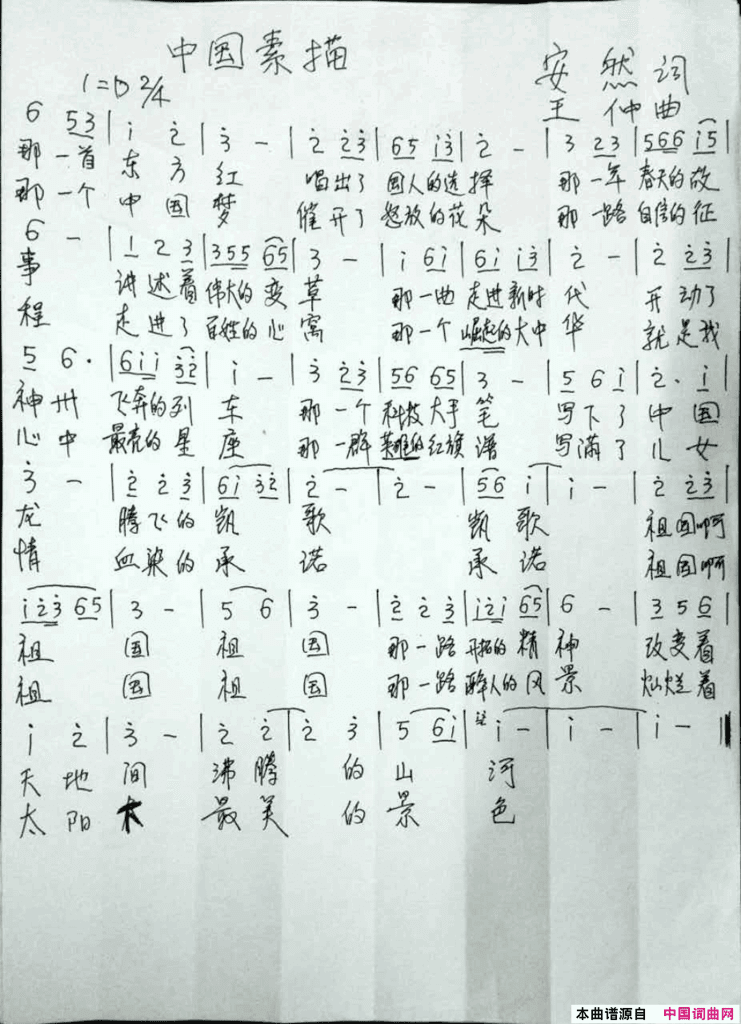 中国素描
安然词
1=D 2/4
王仲曲
6 53 | i 2 | 3 - | 2 23 | 65 i3 | 2 - | 3 23 | 566 i5 |
那一首东方红 唱出了国人的选择 那一年春天的故
那一个中国梦 催开了怒放的花朵 那一路自信的征
6 - | 1 2 3 | 355 65 | 3 - | i 6i | 6i i3 | 2 - | 2 23 |
事 讲述着伟大的变草 那一曲走进新时代 开动了
程 走进了百姓的心窝 那一个崛起的大中华 就是我
5 6. | 6ii 32 | i - | 3 23 | 56 65 | 3 - | 5 6 i | 2. i |
神州飞奔的列车 那一个科技大手笔 写下了中国
心中最亮的星座 那一群英雄的红旗谱 写满了儿女
3 - | 2 2 3 | 6i 32 | 2 - | 2 - | 56 i | i - | 2 23 |
龙 腾飞的凯歌 凯歌 祖国啊
情 血染的承诺 承诺 祖国啊
i23 65 | 3 - | 5 6 | 3 - | 2 2 3 | i2i 65 | 6 - | 3 5 6 |
祖国 祖国 那一路开拓的精神 改变着
祖国 祖国 那一路醉人的风景 灿烂着
i 2 | 3 - | 2 2 | 2 3 | 5 6i | i - | i - | i - ‖
天地间 沸腾的山河
太阳 最美的景色
本曲谱源自 中国词曲网